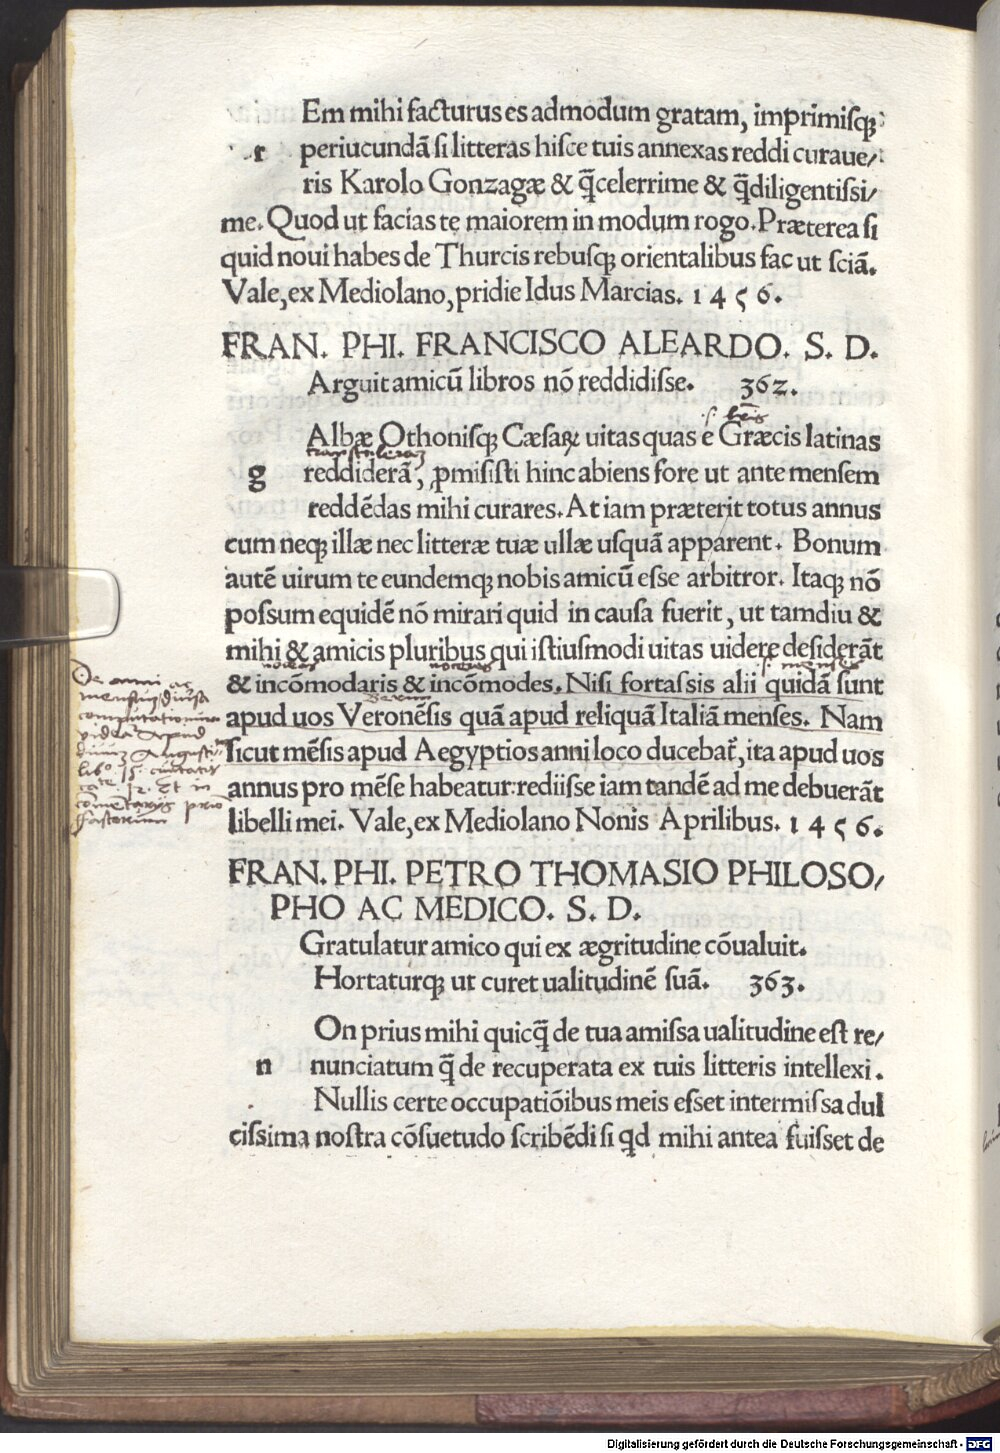 Em mihi facturus es admodum gratam, imprimisqꝫ
r periucundā si litteras hisce tuis annexas reddi curaue/
ris Karolo Gonzagæ & q̄celerrime & q̄diligentissi/
me. Quod ut facias te maiorem in modum rogo. Præterea si
quid noui habes de Thurcis rebusqꝫ orientalibus fac ut sciā.
Vale, ex Mediolano, pridie Idus Marcias. 1456.
FRAN. PHI. FRANCISCO ALEARDO. S. D.
Arguit amicū libros nō reddidisse. 362.
Albæ Othonisqꝫ Cæsaꝝ uitas quas e Græcis latinas
g reddiderā, ꝓmisisti hinc abiens fore ut ante mensem
reddēdas mihi curares. At iam præterit totus annus
cum neqꝫ illæ nec litteræ tuæ ullæ usquā apparent. Bonum
autē uirum te eundemqꝫ nobis amicū esse arbitror. Itaqꝫ nō
possum equidē nō mirari quid in causa fuerit, ut tamdiu &
mihi & amicis pluribus qui istiusmodi uitas uidere desiderāt
& incōmodaris & incōmodes. Nisi fortassis alii quidā sunt
apud uos Veronēsis quā apud reliquā Italiā menses. Nam
sicut mēsis apud Aegyptios anni loco ducebat̄, ita apud uos
annus pro mēse habeatur: rediisse iam tandē ad me debuerāt
libelli mei. Vale, ex Mediolano Nonis Aprilibus. 1456.
De anni ac
mensium diuersa
computatione
vide apud
diuum Augusti
libº 15 ciuitatis
cate. 12. Et in
cōmentarijs
fastorum
FRAN. PHI. PETRO THOMASIO PHILOSO/
PHO AC MEDICO. S. D.
Gratulatur amico qui ex ægritudine cōualuit.
Hortaturqꝫ ut curet ualitudinē suā. 363.
On prius mihi quicq̄ de tua amissa ualitudine est re/
n nunciatum q̄ de recuperata ex tuis litteris intellexi.
Nullis certe occupatiōibus meis esset intermissa dul
cissima nostra cōsuetudo scribēdi si qd mihi antea fuisset de
Digitalisierung gefördert durch die Deutsche Forschungsgemeinschaft - DFG